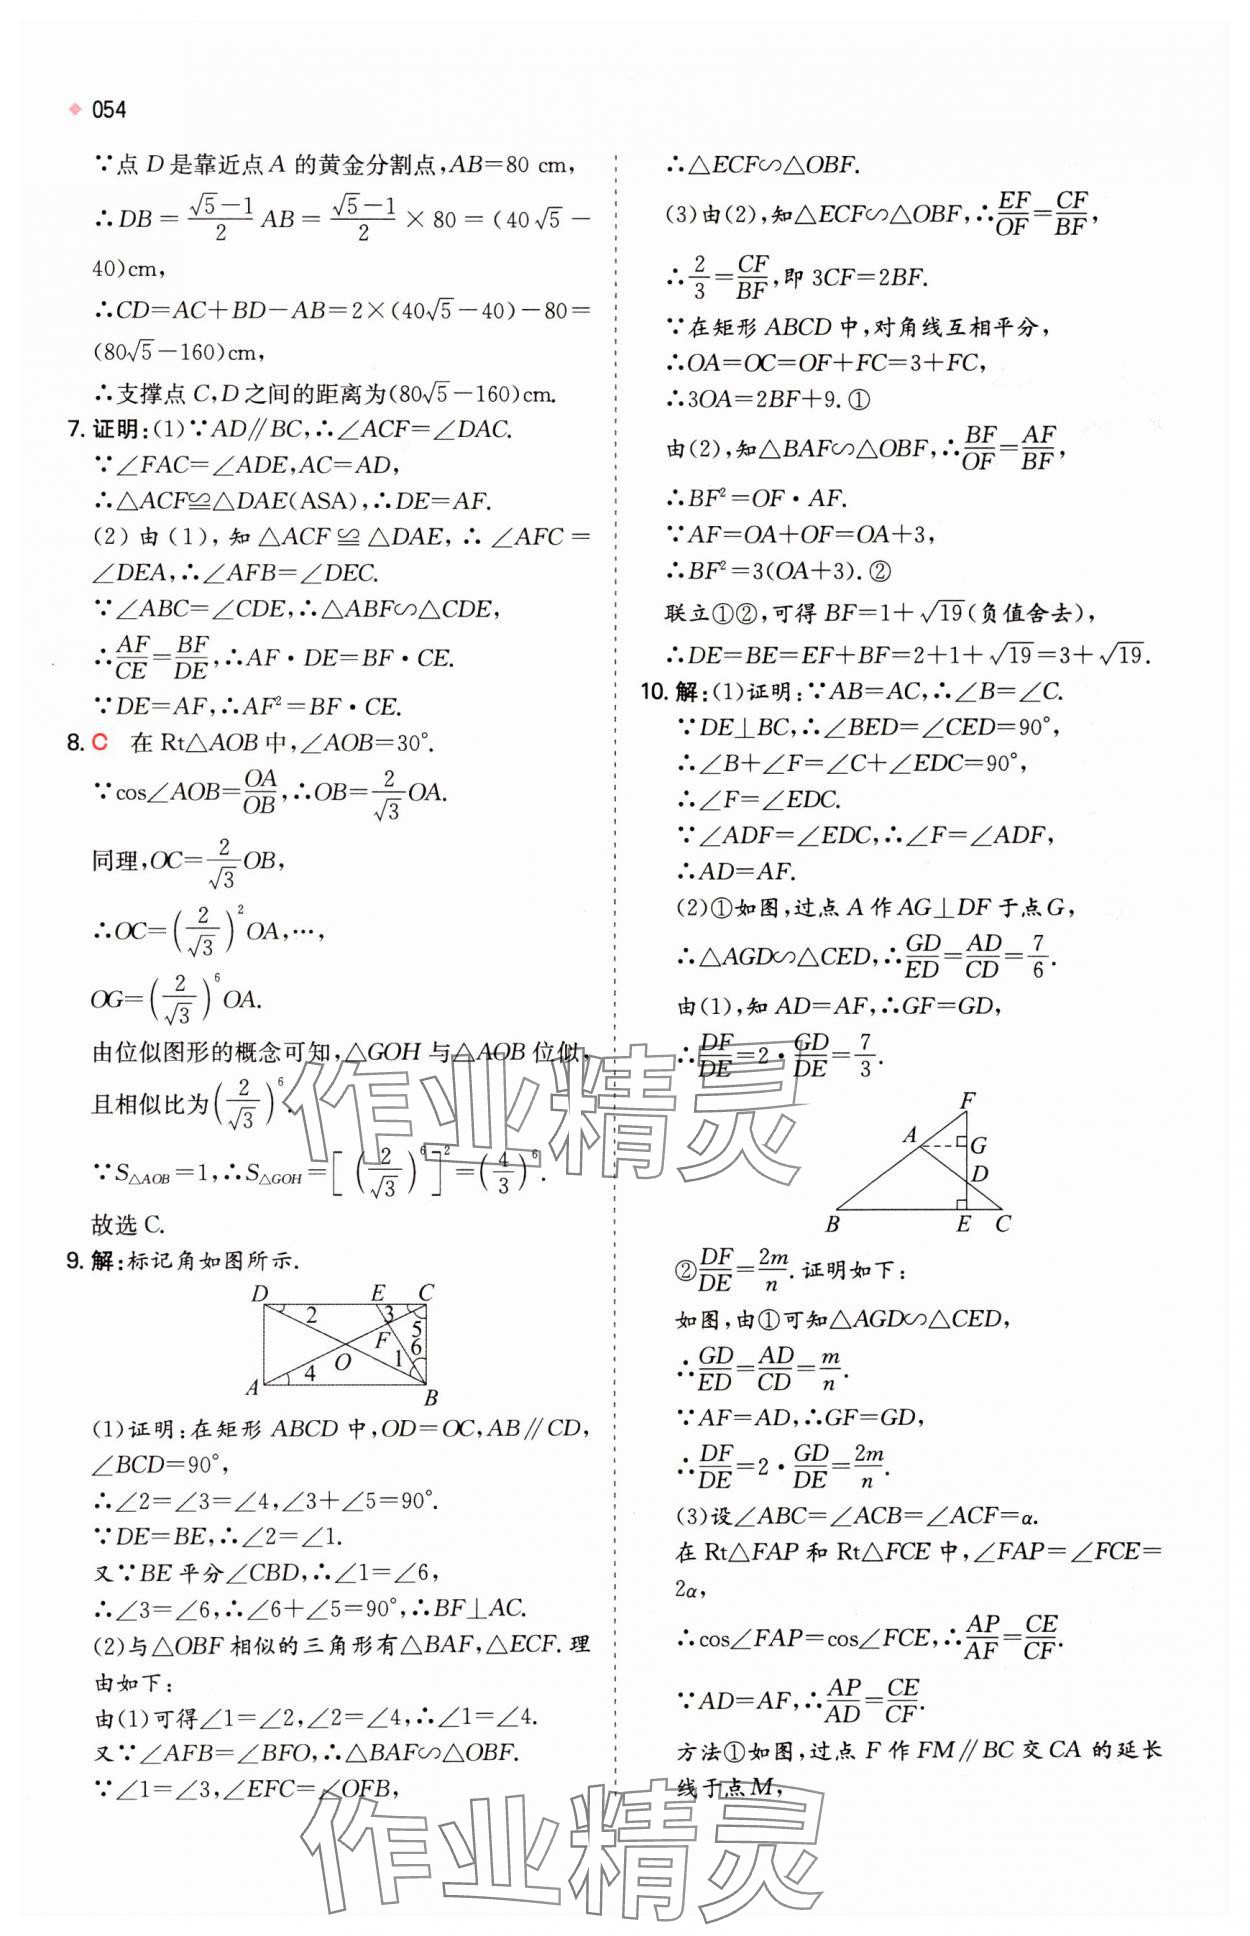 054
∵点 D 是靠近点 A 的黄金分割点,AB=80 cm,
∴DB=\frac{\sqrt{5}-1}{2}AB=\frac{\sqrt{5}-1}{2}×80=(40\sqrt{5}-
40)cm,
∴CD=AC+BD-AB=2×(40\sqrt{5}-40)-80=
(80\sqrt{5}-160)cm,
∴支撑点 C,D 之间的距离为(80\sqrt{5}-160)cm.
7. 证明:(1)∵AD∥BC,∴∠ACF=∠DAC.
∵∠FAC=∠ADE,AC=AD,
∴△ACF≌△DAE(ASA),∴DE=AF.
(2)由(1),知△ACF≌△DAE,∴∠AFC=
∠DEA,∴∠AFB=∠DEC.
∵∠ABC=∠CDE,∴△ABF∽△CDE,
∴\frac{AF}{CE}=\frac{BF}{DE},∴AF·DE=BF·CE.
∵DE=AF,∴AF²=BF·CE.
8. C 在 Rt△AOB 中,∠AOB=30°.
∵cos∠AOB=\frac{OA}{OB},∴OB=\frac{2}{\sqrt{3}}OA.
同理,OC=\frac{2}{\sqrt{3}}OB,
∴OC=(\frac{2}{\sqrt{3}})^2OA,…,
OG=(\frac{2}{\sqrt{3}})^6OA.
由位似图形的概念可知,△GOH 与△AOB 位似,
且相似比为(\frac{2}{\sqrt{3}})^6.
∵S△AOB=1,∴S△GOH=[(\frac{2}{\sqrt{3}})^6]^2=(\frac{4}{3})^6.
故选 C.
9. 解:标记角如图所示.
D E C
2 3 5
F 6
O 1
A 4 B
(1)证明:在矩形 ABCD 中,OD=OC,AB∥CD,
∠BCD=90°,
∴∠2=∠3=∠4,∠3+∠5=90°.
∵DE=BE,∴∠2=∠1.
又∵BE 平分∠CBD,∴∠1=∠6,
∴∠3=∠6,∴∠6+∠5=90°,∴BF⊥AC.
(2)与△OBF 相似的三角形有△BAF,△ECF.理
由如下:
由(1)可得∠1=∠2,∠2=∠4,∴∠1=∠4.
又∵∠AFB=∠BFO,∴△BAF∽△OBF.
∵∠1=∠3,∠EFC=∠OFB,
∴△ECF∽△OBF.
(3)由(2),知△ECF∽△OBF,∴\frac{EF}{OF}=\frac{CF}{BF},
∴\frac{2}{3}=\frac{CF}{BF},即 3CF=2BF.
∵在矩形 ABCD 中,对角线互相平分,
∴OA=OC=OF+FC=3+FC,
∴3OA=2BF+9.①
由(2),知△BAF∽△OBF,∴\frac{BF}{OF}=\frac{AF}{BF},
∴BF²=OF·AF.
∵AF=OA+OF=OA+3,
∴BF²=3(OA+3).②
联立①②,可得 BF=1+\sqrt{19}(负值舍去),
∴DE=BE=EF+BF=2+1+\sqrt{19}=3+\sqrt{19}.
10. 解:(1)证明:∵AB=AC,∴∠B=∠C.
∵DE⊥BC,∴∠BED=∠CED=90°,
∴∠B+∠F=∠C+∠EDC=90°,
∴∠F=∠EDC.
∵∠ADF=∠EDC,∴∠F=∠ADF,
∴AD=AF.
(2)①如图,过点 A 作 AG⊥DF 于点 G,
∴△AGD∽△CED,∴\frac{GD}{ED}=\frac{AD}{CD}=\frac{7}{6}.
由(1),知 AD=AF,∴GF=GD,
∴\frac{DF}{DE}=2·\frac{GD}{DE}=\frac{7}{3}.
F
A G
D
B E C
②\frac{DF}{DE}=\frac{2m}{n}.证明如下:
如图,由①可知△AGD∽△CED,
∴\frac{GD}{ED}=\frac{AD}{CD}=\frac{m}{n}.
∵AF=AD,∴GF=GD,
∴\frac{DF}{DE}=2·\frac{GD}{DE}=\frac{2m}{n}.
(3)设∠ABC=∠ACB=∠ACF=α.
在 Rt△FAP 和 Rt△FCE 中,∠FAP=∠FCE=
2α,
∴cos∠FAP=cos∠FCE,∴\frac{AP}{AF}=\frac{CE}{CF}.
∵AD=AF,∴\frac{AP}{AD}=\frac{CE}{CF}.
方法①如图,过点 F 作 FM∥BC 交 CA 的延长
线于点 M,
作业精灵
作业精灵